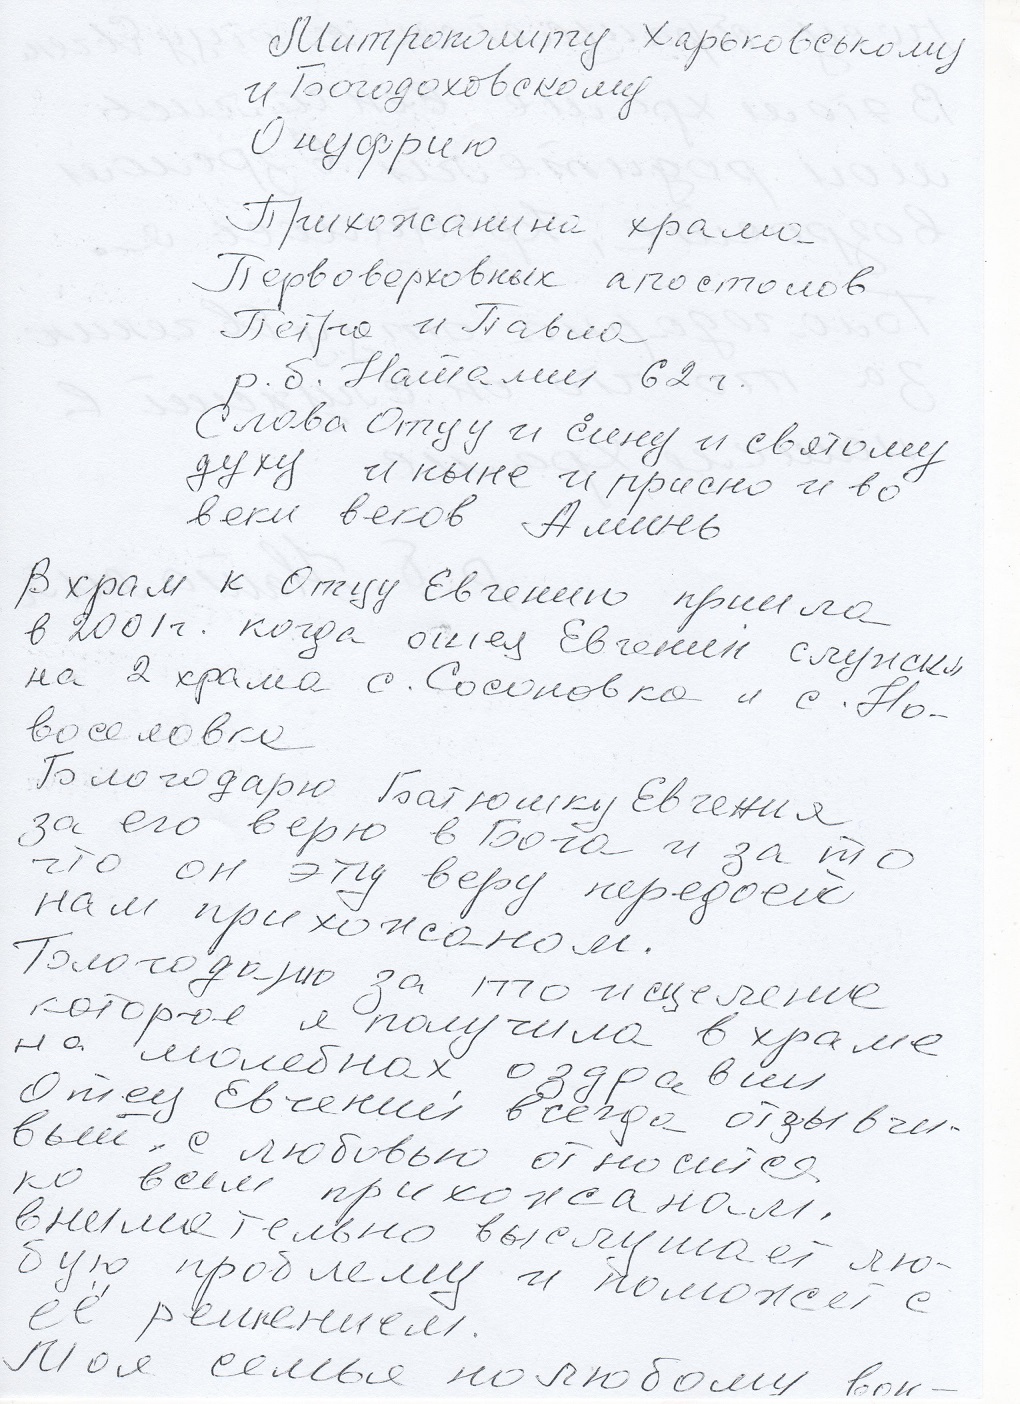 Митрополиту Харьковському
и Богодоховскому
Онуфрию
Прихожанина храма
Первоверховных апостолов
Петра и Павла
р.б. Наталии 62 г.
Слава Отцу и Сыну и святому
духу и ныне и присно и во
веки веков Аминь
В храм к Отцу Евгению пришла
в 2001г. когда отец Евгений служил
на 2 храма с. Сосоновка и с. Но-
воселовка
Благодарю Батюшку Евгения
за его верю в Бога и за то
что он эту веру передаёт
нам прихожаном.
Благодарю за то исцеление
которое я получила в храме
на молебнах о здравии
Отец Евгений всегда отзывчи-
вый, с любовью относится
ко всем прихожанам,
внимательно выслушает лю-
бую проблему и поможет с
её решением.
Моя семья по любому воп-